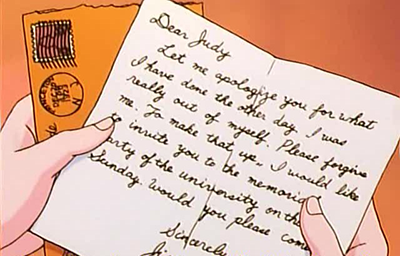 Dear Judy
Let me apologize you for what
I have done the other day. I was
really out of myself. Please forgive
me. To make that up, I would like
to invite you to the memorial
party of the university on the
Sunday. Would you please come
Sincerely